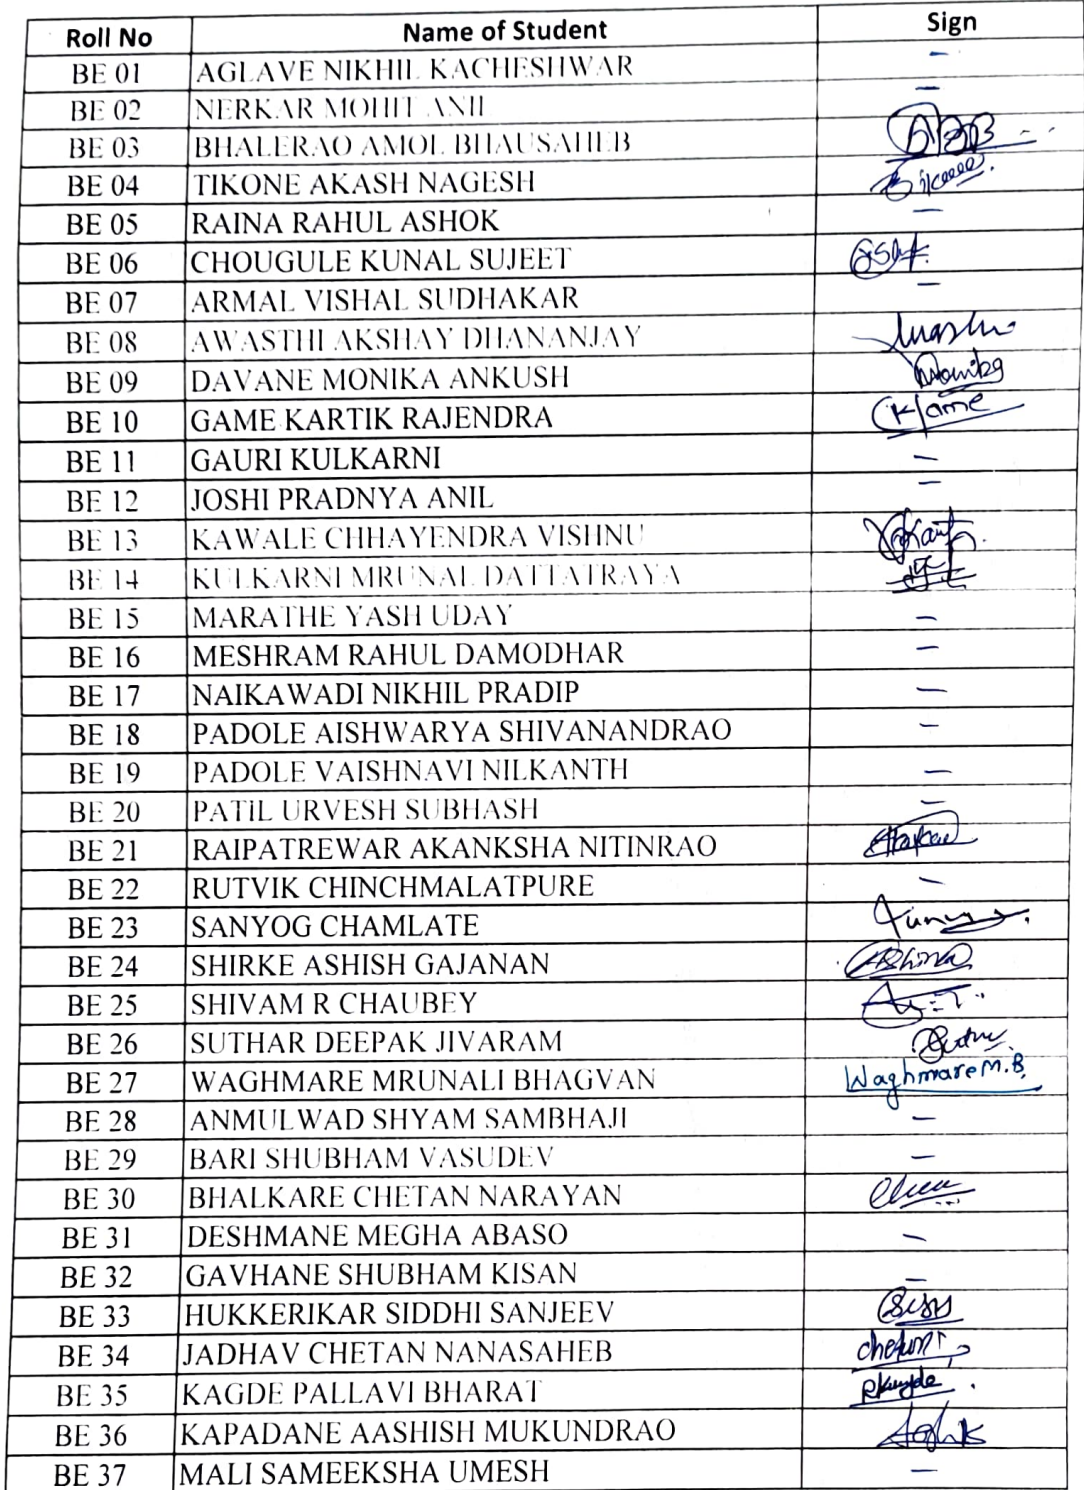 Roll No Name of Student Sign
BE 01 AGLAVE NIKHIL KACHESHWAR –
BE 02 NERKAR MOHIT ANIL –
BE 03 BHALERAO AMOL BHAUSAHEB
BE 04 TIKONE AKASH NAGESH
BE 05 RAINA RAHUL ASHOK –
BE 06 CHOUGULE KUNAL SUJEET
BE 07 ARMAL VISHAL SUDHAKAR –
BE 08 AWASTHI AKSHAY DHANANJAY
BE 09 DAVANE MONIKA ANKUSH Monika
BE 10 GAME KARTIK RAJENDRA
BE 11 GAURI KULKARNI –
BE 12 JOSHI PRADNYA ANIL –
BE 13 KAWALE CHHAYENDRA VISHNU
BE 14 KULKARNI MRUNAL DATTATRAYA
BE 15 MARATHE YASH UDAY –
BE 16 MESHRAM RAHUL DAMODHAR –
BE 17 NAIKAWADI NIKHIL PRADIP –
BE 18 PADOLE AISHWARYA SHIVANANDRAO –
BE 19 PADOLE VAISHNAVI NILKANTH –
BE 20 PATIL URVESH SUBHASH –
BE 21 RAIPATREWAR AKANKSHA NITINRAO
BE 22 RUTVIK CHINCHMALATPURE –
BE 23 SANYOG CHAMLATE
BE 24 SHIRKE ASHISH GAJANAN
BE 25 SHIVAM R CHAUBEY
BE 26 SUTHAR DEEPAK JIVARAM
BE 27 WAGHMARE MRUNALI BHAGVAN Waghmare M.B.
BE 28 ANMULWAD SHYAM SAMBHAJI –
BE 29 BARI SHUBHAM VASUDEV –
BE 30 BHALKARE CHETAN NARAYAN
BE 31 DESHMANE MEGHA ABASO –
BE 32 GAVHANE SHUBHAM KISAN –
BE 33 HUKKERIKAR SIDDHI SANJEEV
BE 34 JADHAV CHETAN NANASAHEB
BE 35 KAGDE PALLAVI BHARAT
BE 36 KAPADANE AASHISH MUKUNDRAO
BE 37 MALI SAMEEKSHA UMESH –